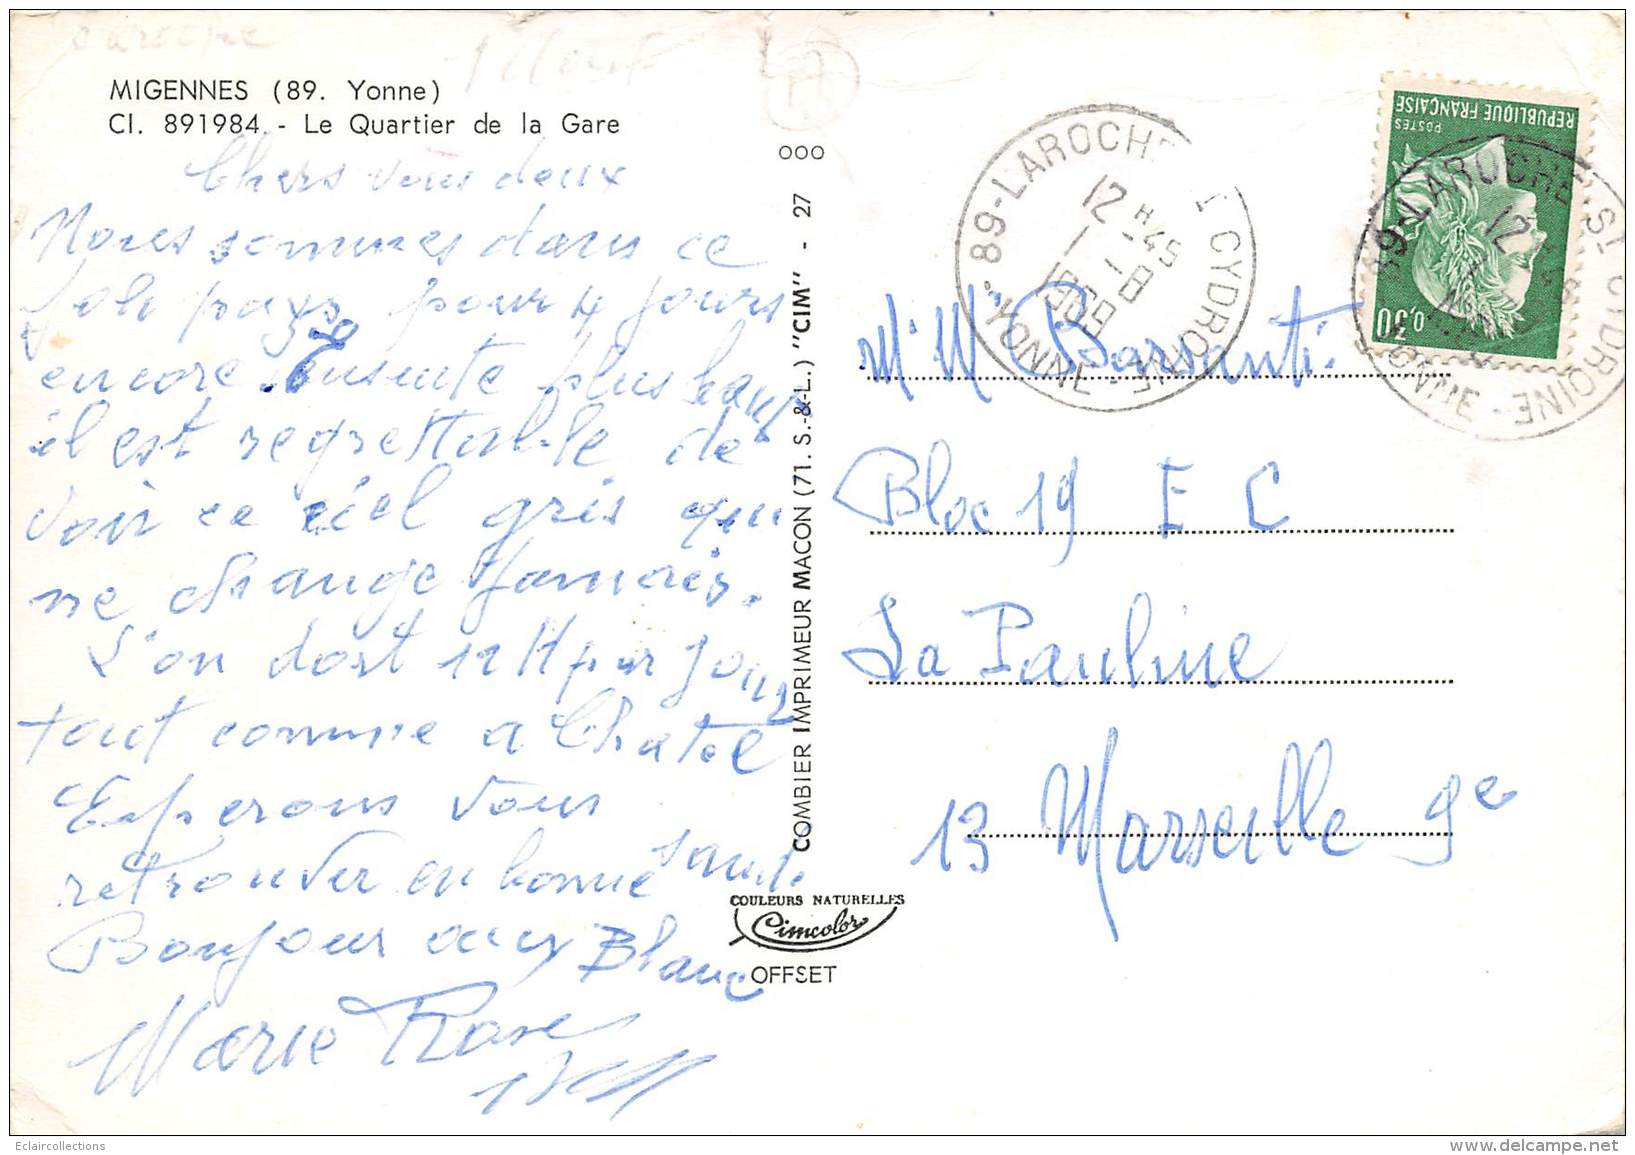 MIGENNES (89. Yonne)
CI. 891984. - Le Quartier de la Gare
Chers vous deux
Nous sommes dans ce
joli pays pour 4 jours
encore ensuite plus haut
il est regrettable de
voir ce ciel gris qui
ne change jamais.
L'on dort 12 H par jour
tout comme a Chatel
Esperons vous
retrouver en bonne santé.
Bonjour aux Blanc
Marie Rose
000
COMBIER IMPRIMEUR MACON (71. S.-&-L.) "CIM" - 27
COULEURS NATURELLES
Cimcolor
OFFSET
89-LAROCHE ST CYDROINE
12 H 45
1-8
1969
YONNE
POSTES
REPUBLIQUE FRANÇAISE
0,30
89-LAROCHE ST CYDROINE
YONNE
Mr Me Barsanti
Bloc 19 E C
La Pauline
13 Marseille 9e
Eclaircollections
www.delcampe.net